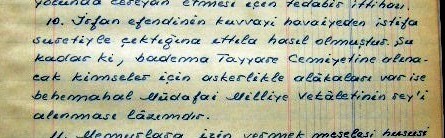 yolunda cereyan etmesi için tedabir ittihazı.
10. İrfan efendinin kuvvayi havaiyeden istifa
suretiyle çektiğine ıttıla hasıl olmuştur. Şu
kadar ki, badema Tayyare Cemiyetine alına-
cak kimseler için askerlikle alâkaları var ise
behemahal Müdafai Milliye Vekâletinin rey'i
alınması lâzımdır.
11. Memurlara izin vermek meselesi hususi